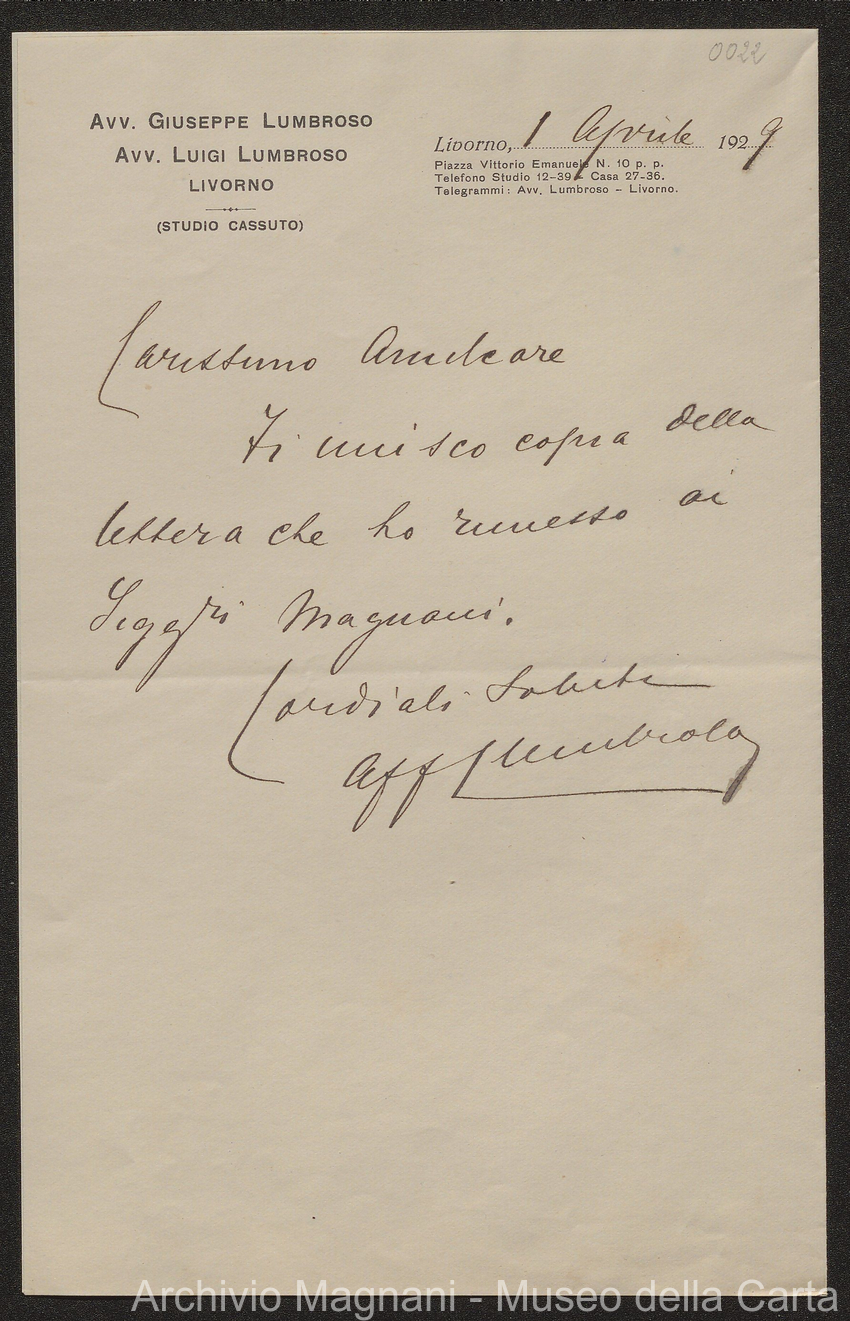 0022
Avv. Giuseppe Lumbroso
Avv. Luigi Lumbroso
LIVORNO
(STUDIO CASSUTO)
Livorno, 1 Aprile 1929
Piazza Vittorio Emanuele N. 10 p. p.
Telefono Studio 12-39 - Casa 27-36.
Telegrammi: Avv. Lumbroso - Livorno.
Carissimo Amilcare
Ti unisco copia della
lettera che ho rimesso ai
Sigg.ri Magnani.
Cordiali Saluti
Aff Lumbroso
Archivio Magnani - Museo della Carta